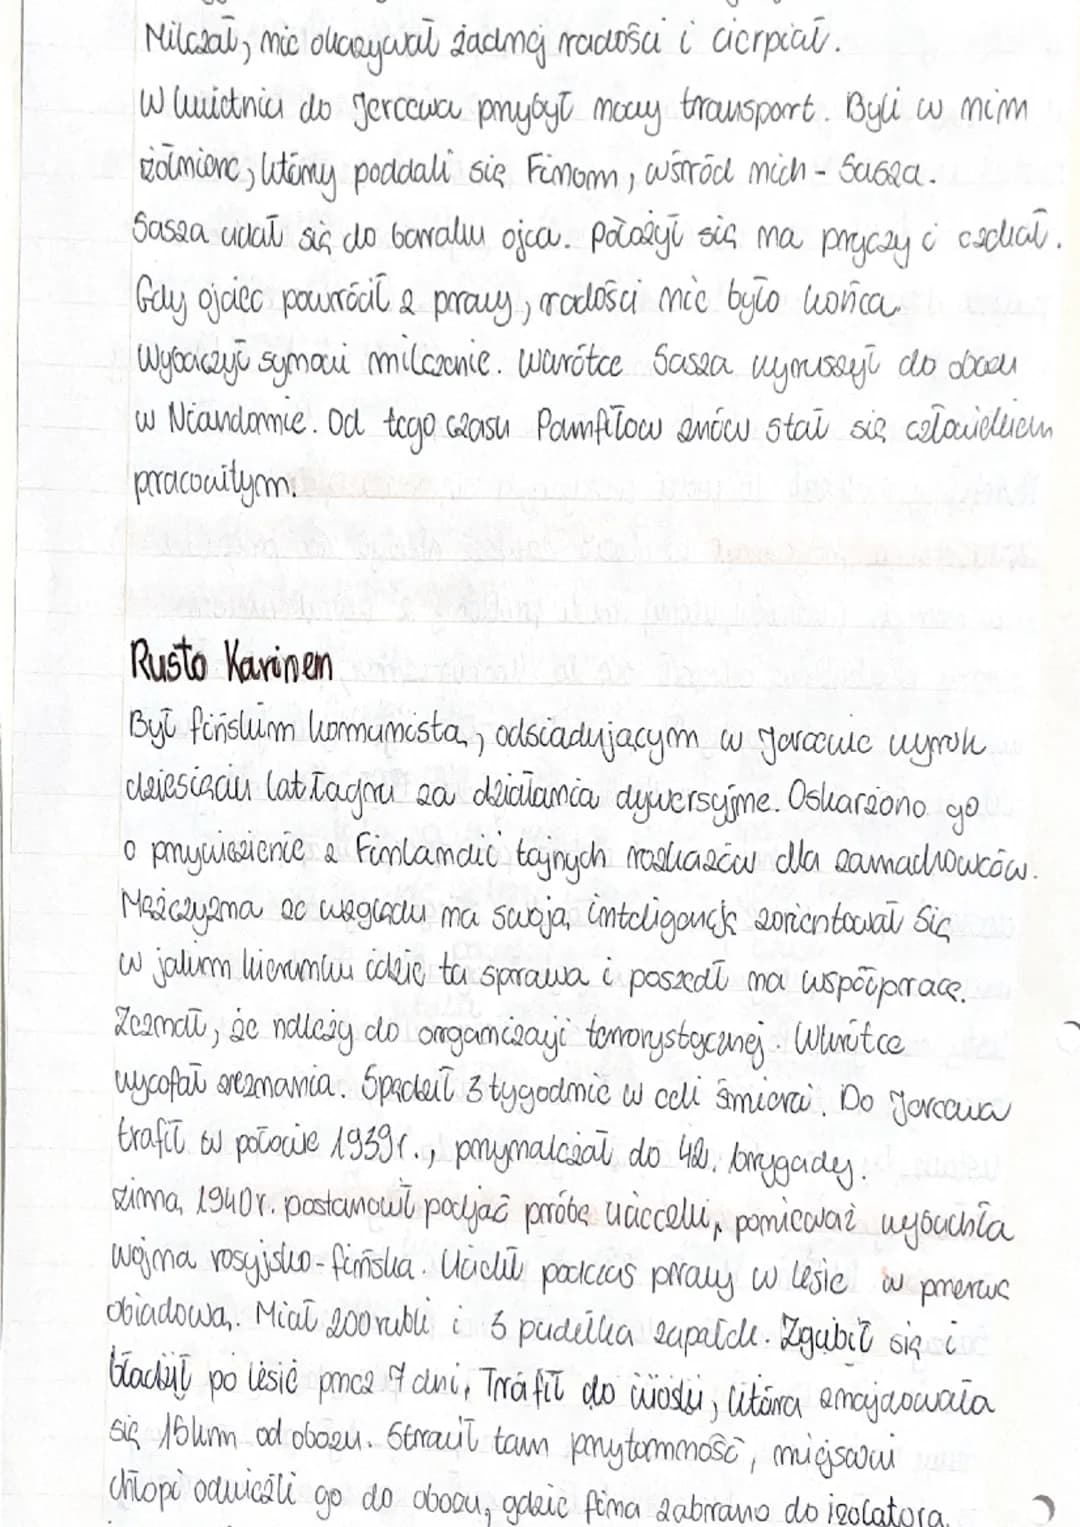 Milczał, nie okazywał żadnej radości i cierpiał.
W kwietniu do Jercewa przybył nowy transport. Byli w nim
żołnierze, którzy poddali się Finom, wśród nich - Sasza.
Sasza udał się do baraku ojca. Położył się na pryczy i czekał.
Gdy ojciec powrócił z pracy, radości nie było końca
Wybaczył synowi milczenie. Wkrótce Sasza wyruszył do obozu
w Niandomie. Od tego czasu Pamfiłow znów stał się człowiekiem
pracowitym.
Rusto Karinen
Był fińskim komunistą, odsiadującym w Jercewie wyrok
dziesięciu lat łagru za działania dywersyjne. Oskarżono go
o przywiezienie z Finlandii tajnych rozkazów dla zamachowców.
Mężczyzna ze względu na swoją inteligencję zorientował się
w jakim kierunku idzie ta sprawa i poszedł na współpracę.
Zeznał, że należy do organizacji terrorystycznej. Wkrótce
wycofał zeznania. Spędził 3 tygodnie w celi śmierci. Do Jercewa
trafił w połowie 1939 r., przynależał do 42. brygady.
zimą 1940 r. postanowił podjąć próbę ucieczki, ponieważ wybuchła
wojna rosyjsko-fińska. Uciekł podczas pracy w lesie w przerwie
obiadową. Miał 200 rubli i 3 pudełka zapałek. Zgubił się i
błądził po lesie przez 7 dni, Trafił do wioski, która znajdowała
się 15km od obozu. Stracił tam przytomność, miejscowi
chłopi odwieźli go do obozu, gdzie fina zabrano do izolatora.